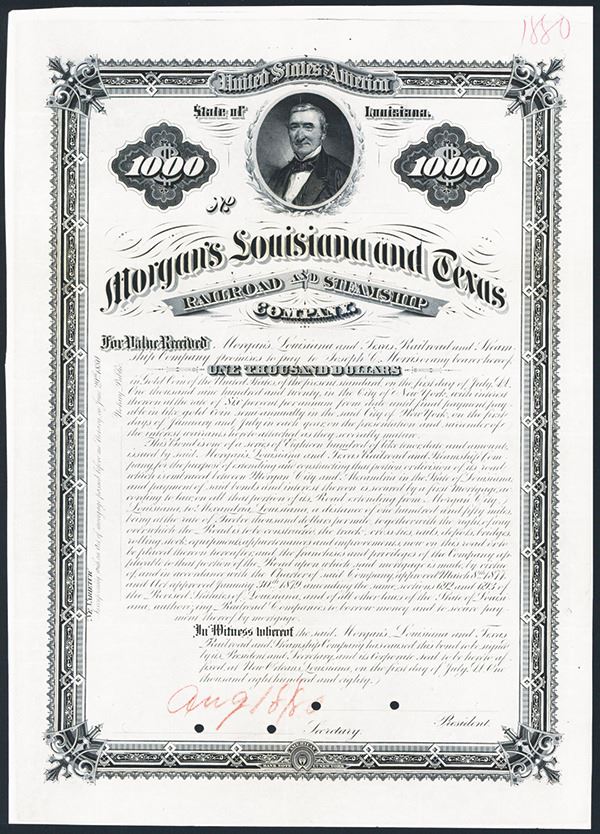 1880
United States of America
State of Louisiana.
1000 1000
No
Morgan's Louisiana and Texas
RAILROAD AND STEAMSHIP
COMPANY.
For Value Received Morgan's Louisiana and Texas Railroad and Steam-
ship Company promises to pay to Joseph C. Morris or any bearer hereof,
ONE THOUSAND DOLLARS
in Gold Coin of the United States, of the present standard, on the first day of July A.D.
One thousand nine hundred and twenty, in the City of New York, with interest
thereon at the rate of Six percent per annum from date until final payment, pay-
able in like gold coin semi-annually in the said City of New York, on the first
days of January and July in each year, on the presentation and surrender of
the interest warrants hereto attached as they severally mature.
This Bond is one of a series of Eighteen hundred of like one date and amount,
issued by said Morgan's Louisiana and Texas Railroad and Steamship Com-
pany for the purpose of extending and constructing that portion or division of its road
which is continued between Morgan City and Alexandria in the State of Louisiana,
and payment of said bonds and interest thereon is secured by a first Mortgage, ac-
cording to law, on all that portion of its Road extending from Morgan City
Louisiana, to Alexandria, Louisiana, a distance of one hundred and fifty miles,
being at the rate of Twelve thousand dollars per mile, together with the right of way
over which the Road is to be constructed, the track, cross ties, rails, depots, bridges
rolling stock, equipments, appurtenances and improvements, now on this road or to
be placed thereon hereafter, and the franchises and privileges of the Company ap-
plicable to that portion of the Road upon which said mortgage is made, by virtue
of, and in accordance with the Charter of said Company, approved March 8th 1877,
and Act approved January 30th 1879, amending the same, sections 692 and 693 of
the Revised Statutes of Louisiana, and of all other laws of the State of Louisi-
ana, authorizing Railroad Companies to borrow money and to secure pay-
ment thereof by mortgage.
In Witness whereof the said Morgan's Louisiana and Texas
Railroad and Steamship Company has caused this bond to be signed
by its President and Secretary, and its Corporate Seal to be hereto af-
fixed at New Orleans, Louisiana, on the first day of July, A.D. One
thousand eight hundred and eighty.
Aug 18/80
Secretary. President.
NE VARIETUR
Notary Public.
AMERICAN
BANK NOTE CO. NEW YORK